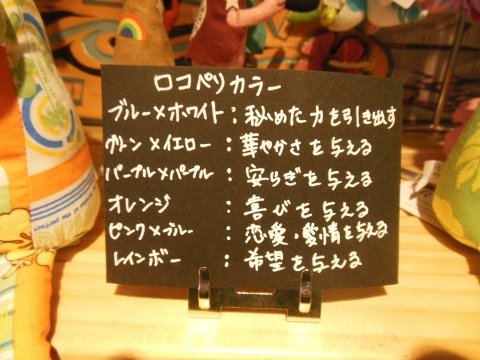 ロコペリカラー
ブルー×ホワイト：秘めた力を引き出す
グリーン×イエロー：華やかさを与える
パープル×パープル：安らぎを与える
オレンジ：喜びを与える
ピンク×ブルー：恋愛・愛情を与える
レインボー：希望を与える